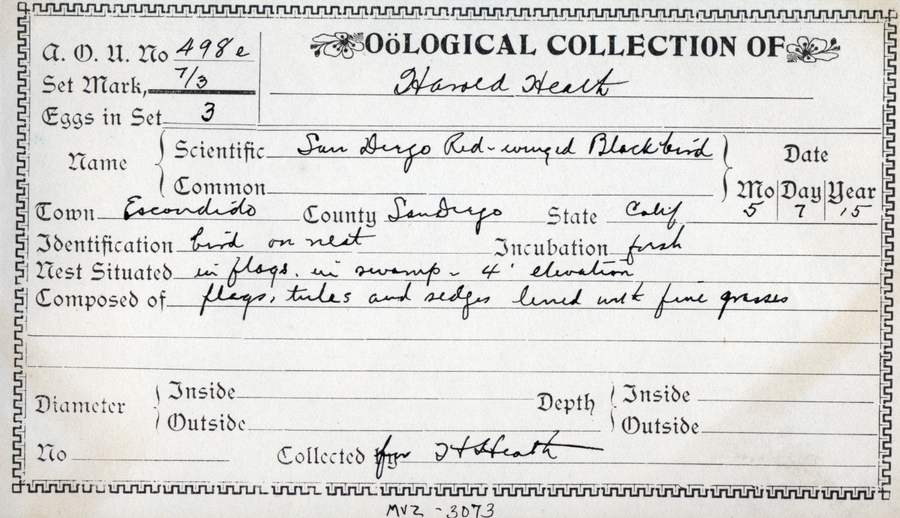 A. O. U. No 498e
OöLOGICAL COLLECTION OF
Set Mark, 7/3
Harold Heath
Eggs in Set 3
Name
Scientific San Diego Red-winged Blackbird
Common
Date
Mo Day Year
5 7 '15
Town Escondido County San Diego State Calif
Identification bird on nest Incubation fresh
Nest Situated in flags, in swamp - 4' elevation
Composed of flags, tules and sedges lined with fine grasses
Diameter
Inside
Outside
Depth
Inside
Outside
No
Collected for H Heath
MVZ - 3073